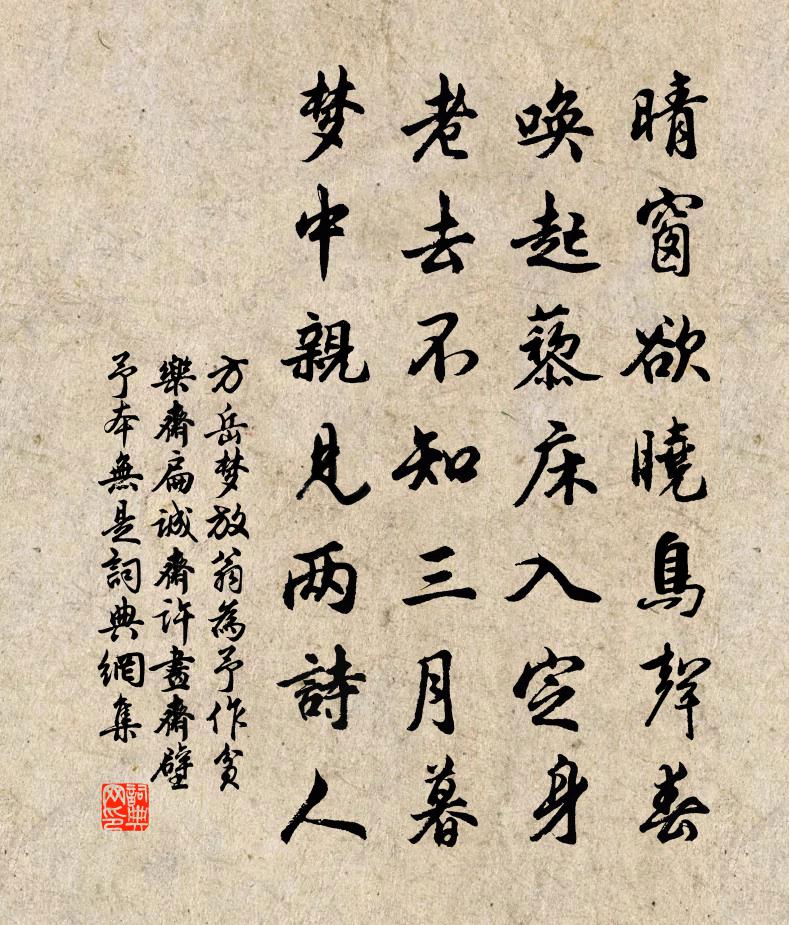 晴窗欲曉鳥聲春
喚起藜床入定身
老去不知三月暮
梦中親見两詩人
方岳梦放翁為予作貧
樂齋扁诚齋許畫齋壁
予本無是詞典網集
詞典网印